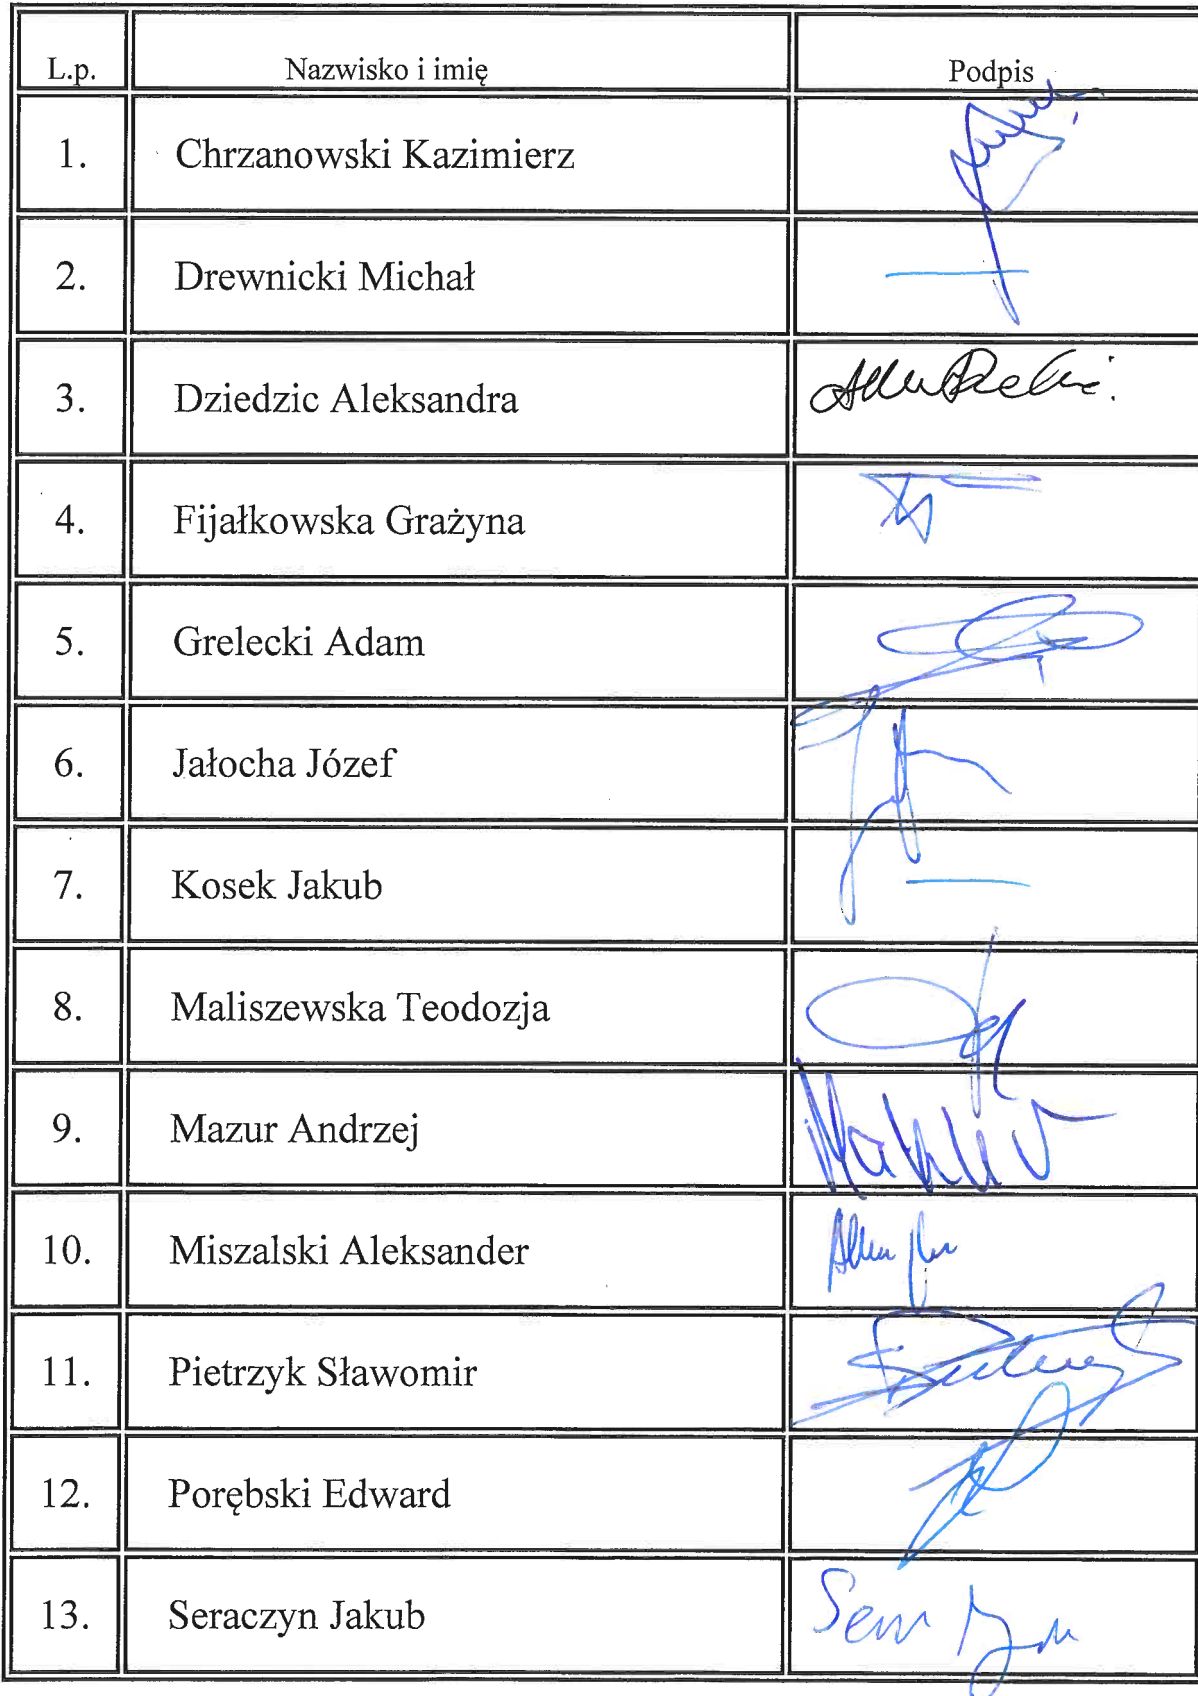 L.p. Nazwisko i imię Podpis
1. Chrzanowski Kazimierz
2. Drewnicki Michał —
3. Dziedzic Aleksandra
4. Fijałkowska Grażyna
5. Grelecki Adam
6. Jałocha Józef
7. Kosek Jakub —
8. Maliszewska Teodozja
9. Mazur Andrzej
10. Miszalski Aleksander
11. Pietrzyk Sławomir
12. Porębski Edward
13. Seraczyn Jakub